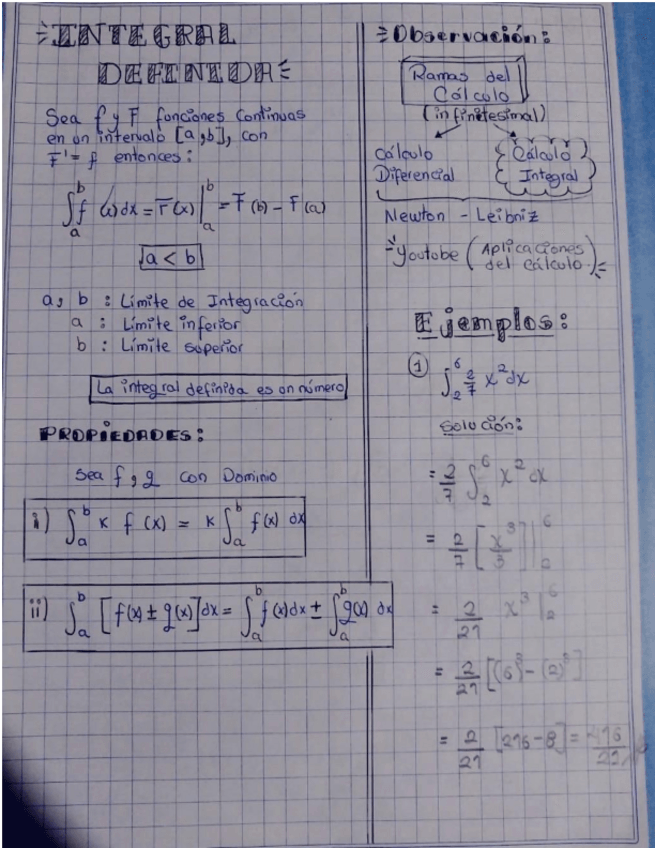 INTEGRAL
DEFINIDA
Sea f y F funciones continuas
en un intervalo [a,b], con
F' = f entonces:
∫_a^b f(x) dx = F(x) |_a^b = F(b) - F(a)
a < b
a, b : Límite de Integración
a : Límite inferior
b : Límite superior
La integral definida es un número
PROPIEDADES:
Sea f, g con Dominio
i) ∫_a^b K f(x) = K ∫_a^b f(x) dx
ii) ∫_a^b [f(x) ± g(x)] dx = ∫_a^b f(x) dx ± ∫_a^b g(x) dx
Observación:
Ramas del
Cálculo
(infinitesimal)
Cálculo
Diferencial
Cálculo
Integral
Newton - Leibniz
Youtube (Aplicaciones
del cálculo.)
Ejemplos:
① ∫_2^6 2/7 x² dx
Solución:
= 2/7 ∫_2^6 x² dx
= 2/7 [x³/3] |_2^6
= 2/21 x³ |_2^6
= 2/21 [(6)³ - (2)³]
= 2/21 [216 - 8] = 416/21